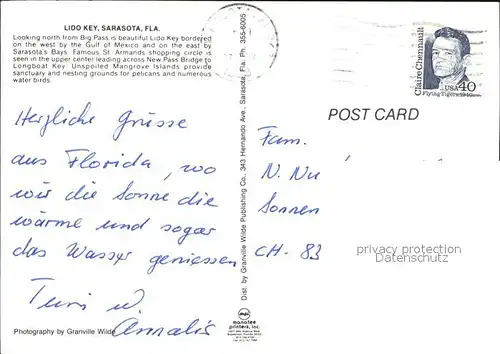 LIDO KEY, SARASOTA, FLA.
Looking north from Big Pass is beautiful Lido Key bordered
on the west by the Gulf of Mexico and on the east by
Sarasota's Bays. Famous St Armands shopping circle is
seen in the upper center leading across New Pass Bridge to
Longboat Key. Unspoiled Mangrove Islands provide
sanctuary and nesting grounds for pelicans and numerous
water birds.
Herzliche Grüsse
aus Florida, wo
wir die Sonne die
wärme und sogar
das Wasser geniessen
Turi u.
Annalis
Photography by Granville Wilde
Dist. by Granville Wilde Publishing Co., 343 Hernando Ave. Sarasota, Fla. Ph. 355-6005
manatee
printers, inc.
Claire Chennault
USA 40
Flying Tigers 1940s
POST CARD
Fam.
N. Nu
Sonnen
CH - 83
privacy protection
Datenschutz